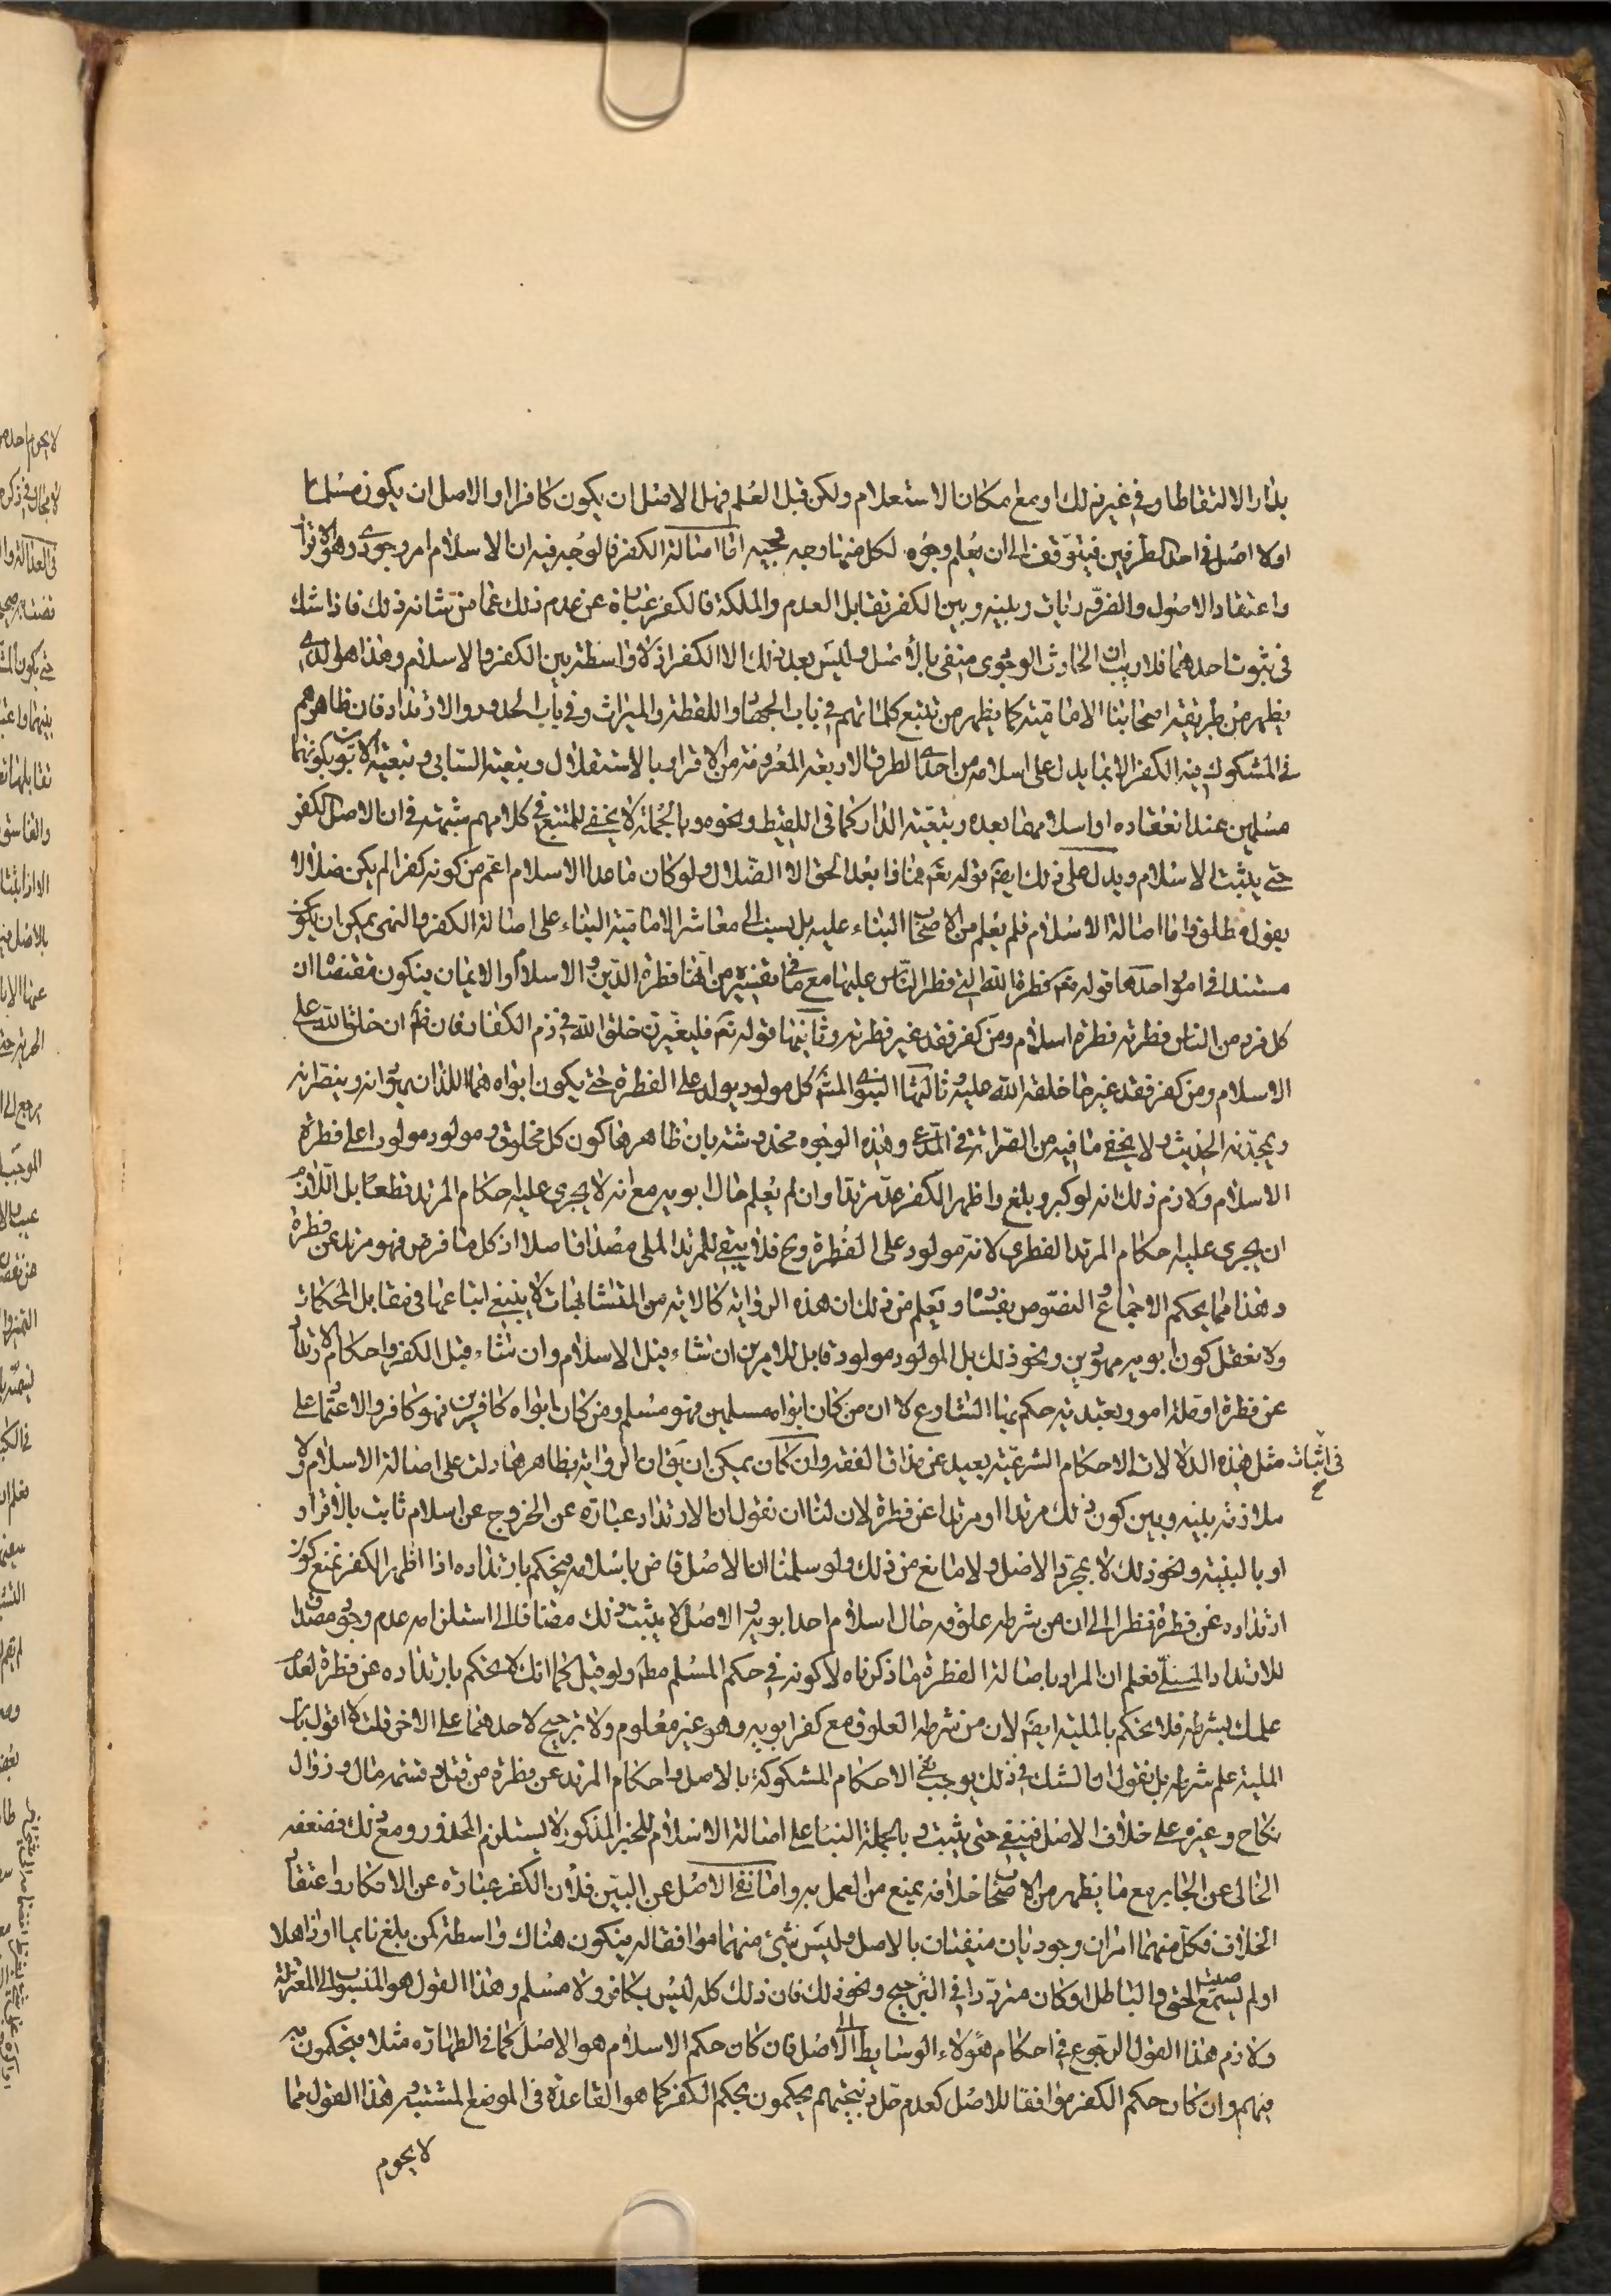 بدار الالتقاط او في غير ذلك او مع امكان الاستعلام ولكن قبل العلم فهل الاصل ان يكون كافرا او الاصل ان يكون مسلما
اولا اصل في احد الطرفين فيتوقف الى ان يعلم وجوه لكل منها وجه وجيه اما اصالة الكفر فالوجه فيه ان الاسلام امر وجودي وهو الاقرار
واعتقاد الاصول والفرق بينه وبين الكفر تقابل العدم والملكة فالكفر عبارة عن عدم ذلك عما من شانه ذلك فاذا شك
في ثبوت احدهما فلا ريب ان الحادث الوجودي منفي بالأصل وليس بعد ذلك الا الكفر اذ لا واسطة بين الكفر والاسلام وهذا هو الذي
يظهر من طريقة اصحابنا الامامية كما يظهر من تتبع كلماتهم في باب الجهاد واللقطة والميراث وفي باب الحدود والارتداد فان ظاهرهم
في المشكوك فيه الكفر الا بما يدل على اسلامه من احدى الطرق الاربعة المعروفة من الاقرار بالاستقلال وتبعية السابي وتبعية الابوين بكونهما
مسلمين عند انعقاده او اسلامهما بعده وتبعية الدار كما في اللقيط ونحوه وبالجملة لا يخفى للمتتبع في كلامهم شبهة في ان الاصل الكفر
حتى يثبت الاسلام ويدل على ذلك ايضا قوله تع فماذا بعد الحق الا الضلال ولو كان ما عدا الاسلام اعم من كونه كفرا لم يكن ضلالا
بقول مطلق واما اصالة الاسلام فلم يعلم من الاصحاب البناء عليه بل نسب الى معاشر الامامية البناء على اصالة الكفر والنهى يمكن ان يكون
مستندا في امور احدها قوله تع فطرة الله التي فطر الناس عليها مع ما في تفسيره من انها فطرة الدين والاسلام والايمان فيكون مقتضاه ان
كل فرد من الناس فطرته فطرة اسلام ومن كفر فقد غير فطرته وثانيها قوله تع فليغيرن خلق الله في ذم الكفار فان ظاهره ان خلق الله على
الاسلام ومن كفر فقد غير ما خلقه الله عليه وثالثها النبوي المشهور كل مولود يولد على الفطرة حتى يكون ابواه هما اللذان يهودانه وينصرانه
ويمجسانه الحديث ولا يخفى ما فيه من الصراحة في المدعى وهذه الوجوه مخدوشة بان ظاهرها كون كل مخلوق ومولود مولودا على فطرة
الاسلام ولازم ذلك انه لو كبر وبلغ واظهر الكفر عد مرتدا وان لم يعلم حال ابويه مع انه لا يجري عليه احكام المرتد قطعا بل اللازم
ان يجري عليه احكام المرتد الفطري لانه مولود على الفطرة وح فلا يبقى للمرتد الملي مصداق اصلا اذ كل ما فرض فهو مرتد عن فطرة
وهذا مما يحكم الاجماع والنصوص بفساده ويعلم من ذلك ان هذه الرواية كالاية من المتشابهات لا ينبغي اتباعها في مقابل المحكمات
ولا نعقل كون ابويه مهودين ونحو ذلك بل المولود مولود قابل للامرين ان شاء قبل الاسلام وان شاء قبل الكفر واحكام الارتداد
عن فطرة او ملة امور تعبدية حكم بها الشارع لا ان من كان ابواه مسلمين فهو مسلم ومن كان ابواه كافرين فهو كافر والاعتماد على
مثل هذه الدلالات الاحكام الشرعية بعيد عن مذاق الفقه وان كان يمكن ان يق ان الرواية بظاهرها دلت على اصالة الاسلام ولا
في اثبات صح
ملازمة بينه وبين كون ذلك مرتدا او مرتدا عن فطرة لان لنا ان نقول ان الارتداد عبارة عن الخروج عن اسلام ثابت بالاقرار
او بالبينة ونحو ذلك لا بمجرد الاصل ولا مانع من ذلك ولو سلمنا ان الاصل قاض باسلامه فيحكم بارتداده اذا اظهر الكفر نمنع كون
ارتداده عن فطرة نظرا الى ان من شرطه علوقه حال اسلام احد ابويه والاصل لا يثبت ذلك مضافا الى استلزامه عدم وجود مصداق
للارتداد الملي فعلم ان المراد باصالة الفطرة ما ذكرناه لا كونه في حكم المسلم مط ولو قيل كما انك لا تحكم بارتداده عن فطرة لعدم
علمك بشرطه فلا تحكم بالملية ايضا لان من شرطه العلوق مع كفر ابويه وهو غير معلوم ولا ترجيح لاحدهما على الاخر قلت لا اقول بان
الملية علم شرطه بل نقول ان الشك في ذلك يوجب نفي الاحكام المشكوكة بالاصل واحكام المرتد عن فطرة من قتل وقسمة مال وزوال
نكاح وغيره على خلاف الاصل فينبغي حتى يثبت وبالجملة البناء على اصالة الاسلام للخبر المذكور لا يستلزم المحذور ومع ذلك فضعفه
الخالي عن الجابر مع ما يظهر من الاصحاب خلافه يمنع من العمل به واما نفي الاصل عن البين فلأن الكفر عبارة عن الانكار واعتقاد
الخلاف فكل منهما امران وجوديان منفيان بالاصل وليس شيء منهما موافقا له فيكون هناك واسطة كمن بلغ نايما او ذاهلا
او لم يسمع صيت الحق والباطل او كان مترددا في الترجيح ونحو ذلك فان ذلك كله ليس بكافر ولا مسلم وهذا القول هو المنسوب الى المعتزلة
ولازم هذا القول الرجوع في احكام هؤلاء الوسايط الى الاصل فان كان حكم الاسلام هو الاصل كما في الطهارة مثلا فيحكمون به
فيهم وان كان حكم الكفر موافقا للاصل كعدم حل ذبيحتهم يحكمون بحكم الكفر كما هو القاعدة في الموضع المشتبه وهذا القول مما
لا يحوم